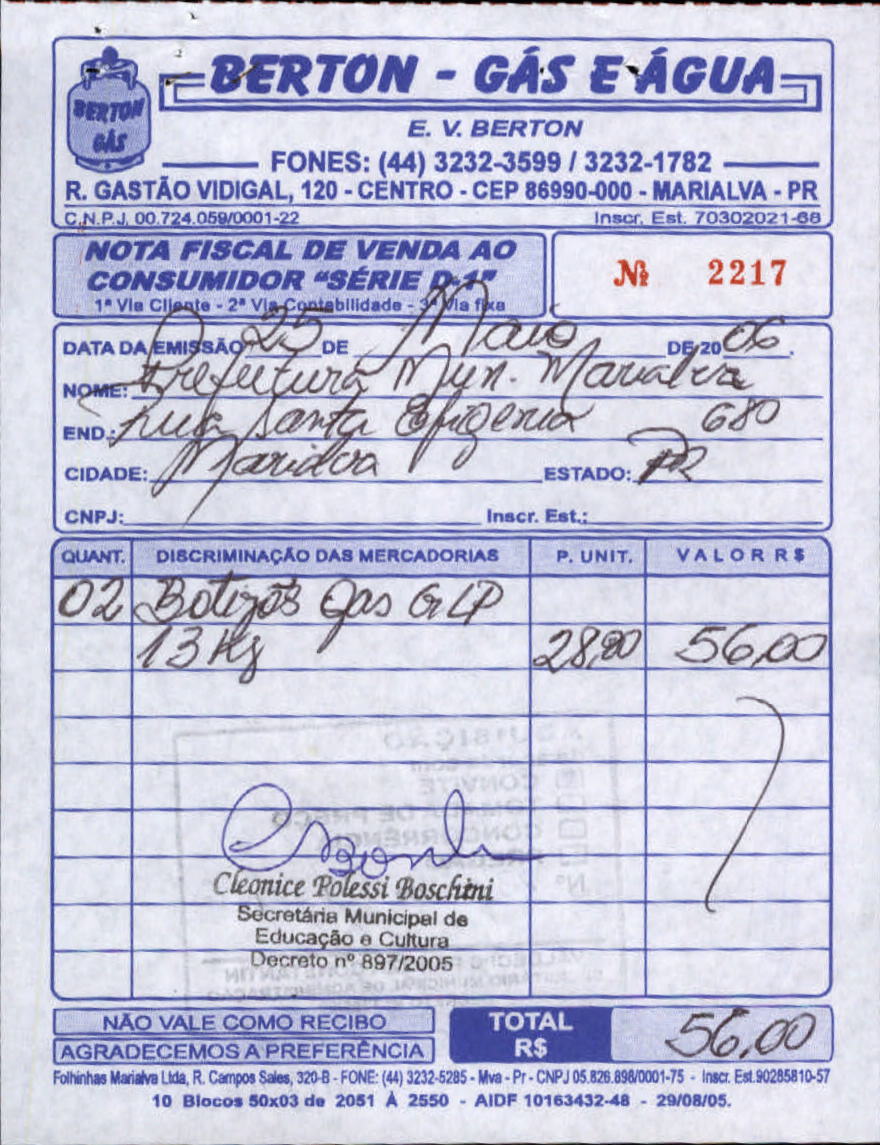 BERTON GÁS
BERTON - GÁS E ÁGUA
E. V. BERTON
FONES: (44) 3232-3599 / 3232-1782
R. GASTÃO VIDIGAL, 120 - CENTRO - CEP 86990-000 - MARIALVA - PR
C.N.P.J. 00.724.059/0001-22 Inscr. Est. 70302021-68
NOTA FISCAL DE VENDA AO
CONSUMIDOR "SÉRIE D-1"
1ª Via Cliente - 2ª Via Contabilidade - 3ª Via fixa
Nº 2217
DATA DA EMISSÃO 25 DE Maio DE 20 06.
NOME: Prefeitura Mun. Marialva
END.: Rua Santa Efigenia 680
CIDADE: Marialva ESTADO: PR
CNPJ: Inscr. Est.:
QUANT. DISCRIMINAÇÃO DAS MERCADORIAS P. UNIT. VALOR R$
02 Botijões Gas GLP
13 Kg 28,00 56,00
Cleonice Polessi Boschini
Secretária Municipal de
Educação e Cultura
Decreto nº 897/2005
NÃO VALE COMO RECIBO
AGRADECEMOS A PREFERÊNCIA
TOTAL R$ 56,00
Folhinhas Marialva Ltda, R. Campos Sales, 320-B - FONE: (44) 3232-5285 - Mva - Pr - CNPJ 05.826.898/0001-75 - Inscr. Est.90285810-57
10 Blocos 50x03 de 2051 À 2550 - AIDF 10163432-48 - 29/08/05.